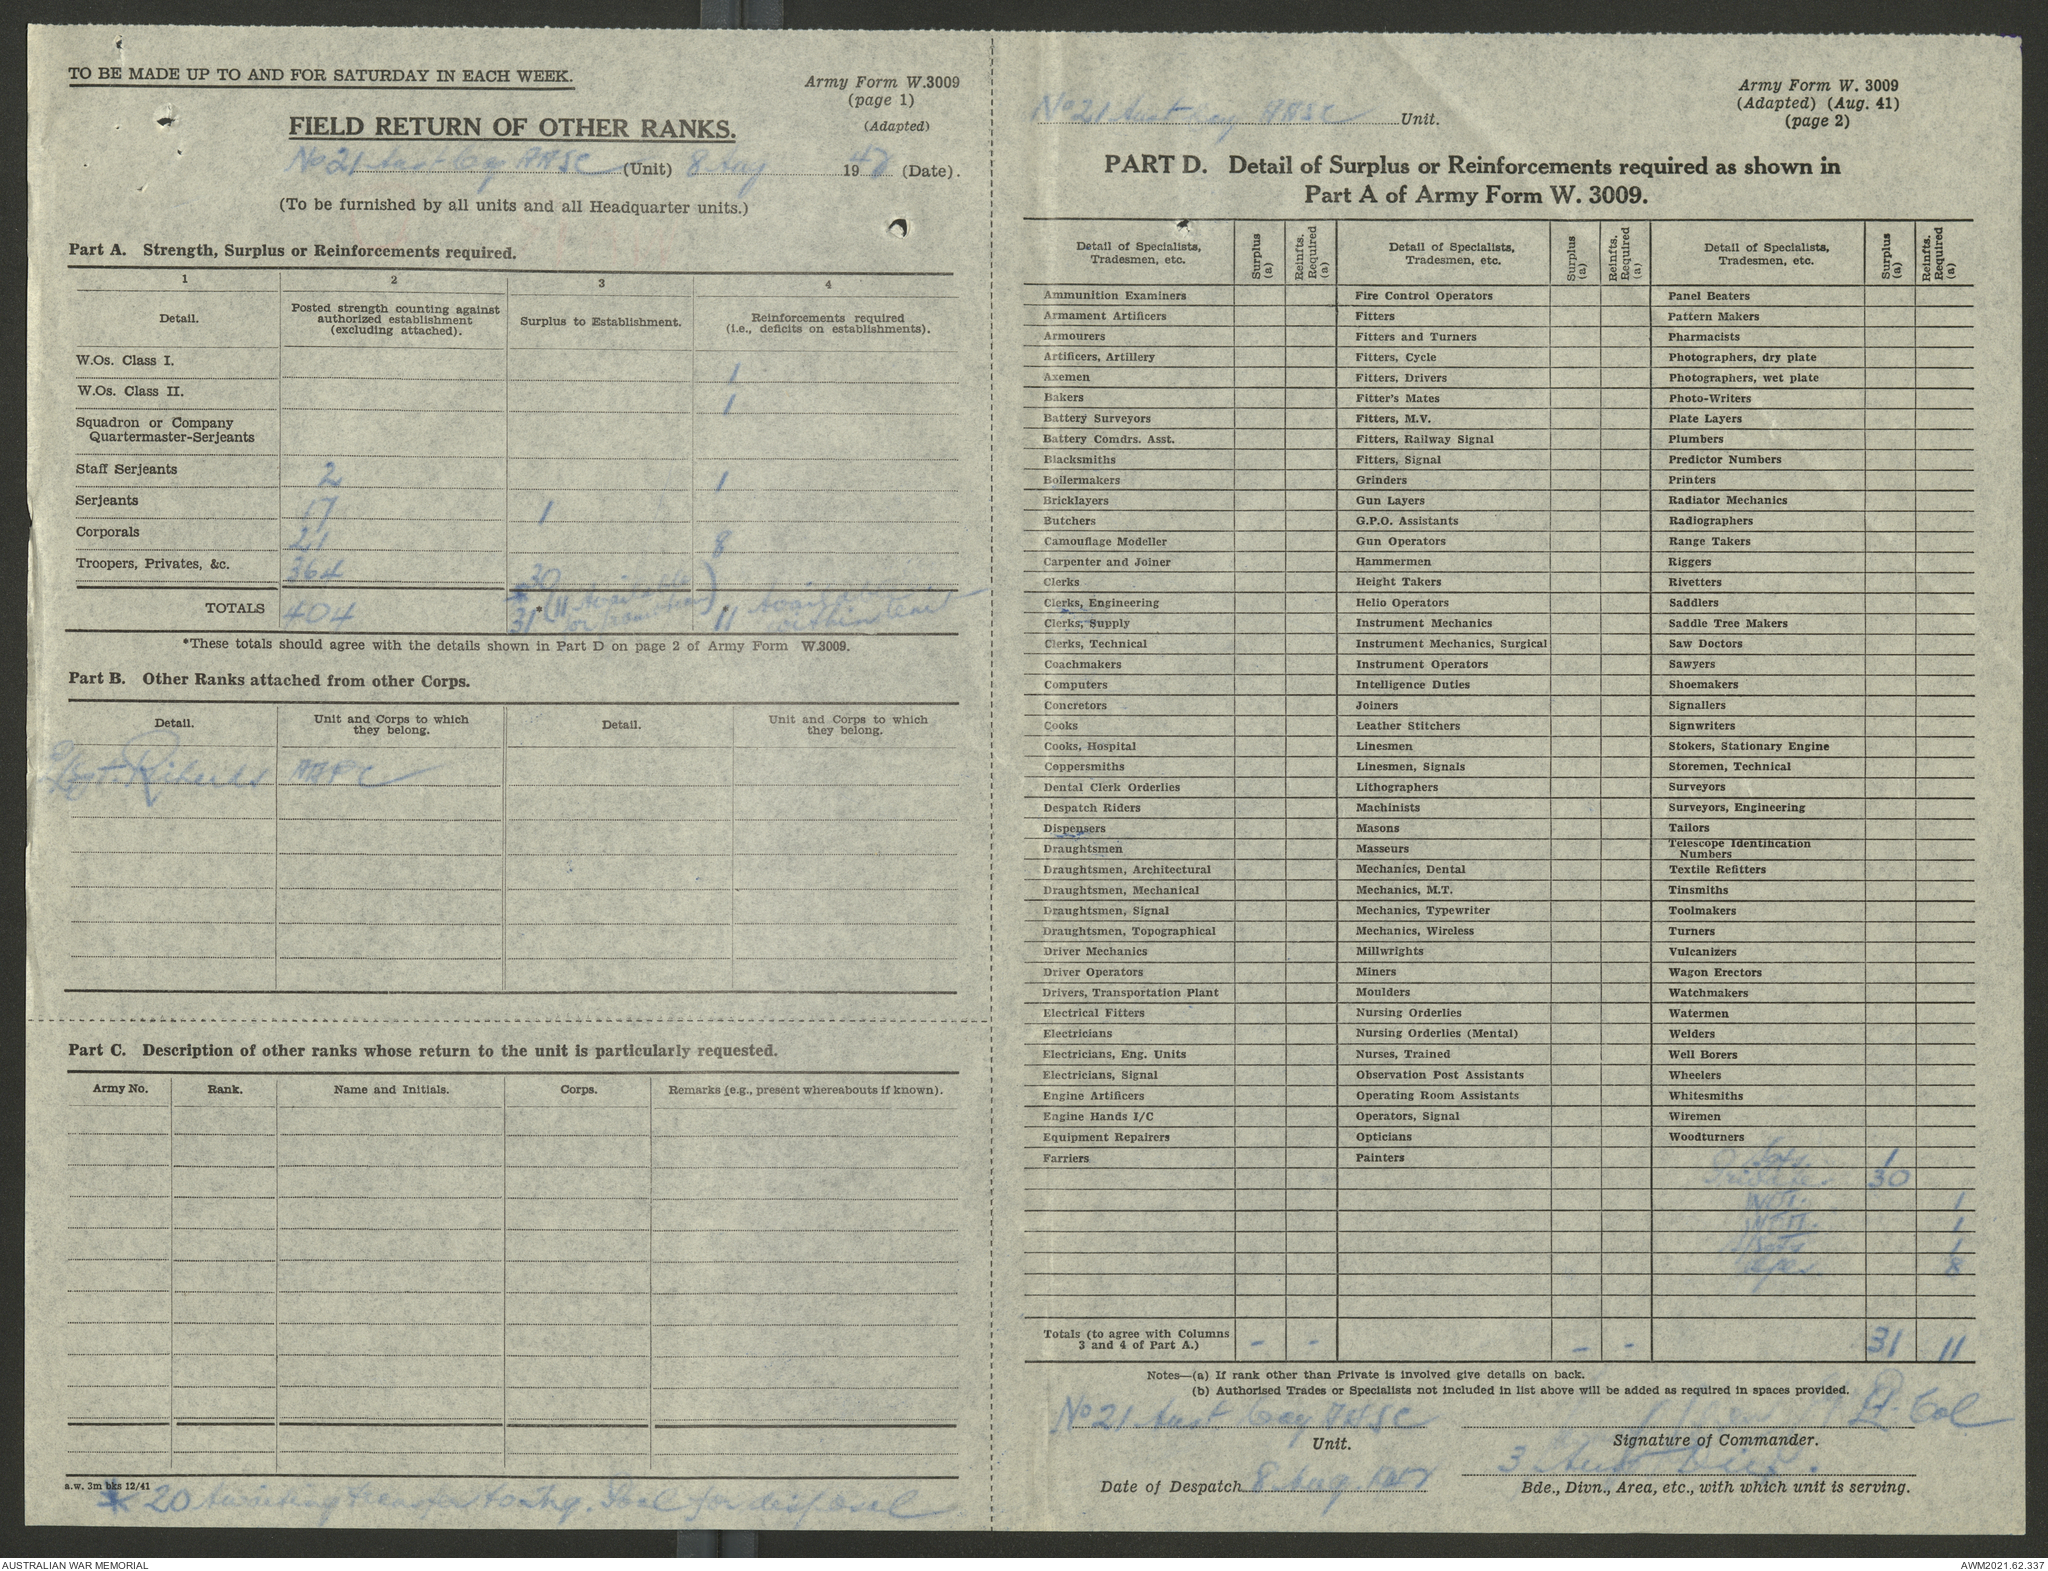 TO BE MADE UP TO AND FOR SATURDAY IN EACH WEEK.
Army Form W.3009
(page 1)
(Adapted)
FIELD RETURN OF OTHER RANKS.
No 21 Aust Coy AASC (Unit) 8 Aug 1942 (Date).
(To be furnished by all units and all Headquarter units.)
Part A. Strength, Surplus or Reinforcements required.
1 2 3 4
Detail. Posted strength counting against authorized establishment (excluding attached). Surplus to Establishment. Reinforcements required (i.e., deficits on establishments).
W.Os. Class I. 1
W.Os. Class II. 1
Squadron or Company
Quartermaster-Serjeants
Staff Serjeants 2 1
Serjeants 17 1
Corporals 21 8
Troopers, Privates, &c. 364 * 30
TOTALS 404 31* (11 available or promotion) * 11 available within unit
*These totals should agree with the details shown in Part D on page 2 of Army Form W.3009.
Part B. Other Ranks attached from other Corps.
Detail. Unit and Corps to which they belong. Detail. Unit and Corps to which they belong.
AAPC
Part C. Description of other ranks whose return to the unit is particularly requested.
Army No. Rank. Name and Initials. Corps. Remarks (e.g., present whereabouts if known).
a.w. 3m bks 12/41
* 20 Awaiting transfer to for disposal
Army Form W. 3009
(Adapted) (Aug. 41)
(page 2)
No 21 Aust Coy AASC Unit.
PART D. Detail of Surplus or Reinforcements required as shown in
Part A of Army Form W. 3009.
Detail of Specialists, Tradesmen, etc. Surplus (a) Reinfts. Required (a) Detail of Specialists, Tradesmen, etc. Surplus (a) Reinfts. Required (a) Detail of Specialists, Tradesmen, etc. Surplus (a) Reinfts. Required (a)
Ammunition Examiners Fire Control Operators Panel Beaters
Armament Artificers Fitters Pattern Makers
Armourers Fitters and Turners Pharmacists
Artificers, Artillery Fitters, Cycle Photographers, dry plate
Axemen Fitters, Drivers Photographers, wet plate
Bakers Fitter's Mates Photo-Writers
Battery Surveyors Fitters, M.V. Plate Layers
Battery Comdrs. Asst. Fitters, Railway Signal Plumbers
Blacksmiths Fitters, Signal Predictor Numbers
Boilermakers Grinders Printers
Bricklayers Gun Layers Radiator Mechanics
Butchers G.P.O. Assistants Radiographers
Camouflage Modeller Gun Operators Range Takers
Carpenter and Joiner Hammermen Riggers
Clerks Height Takers Rivetters
Clerks, Engineering Helio Operators Saddlers
Clerks, Supply Instrument Mechanics Saddle Tree Makers
Clerks, Technical Instrument Mechanics, Surgical Saw Doctors
Coachmakers Instrument Operators Sawyers
Computers Intelligence Duties Shoemakers
Concretors Joiners Signallers
Cooks Leather Stitchers Signwriters
Cooks, Hospital Linesmen Stokers, Stationary Engine
Coppersmiths Linesmen, Signals Storemen, Technical
Dental Clerk Orderlies Lithographers Surveyors
Despatch Riders Machinists Surveyors, Engineering
Dispensers Masons Tailors
Draughtsmen Masseurs Telescope Identification Numbers
Draughtsmen, Architectural Mechanics, Dental Textile Refitters
Draughtsmen, Mechanical Mechanics, M.T. Tinsmiths
Draughtsmen, Signal Mechanics, Typewriter Toolmakers
Draughtsmen, Topographical Mechanics, Wireless Turners
Driver Mechanics Millwrights Vulcanizers
Driver Operators Miners Wagon Erectors
Drivers, Transportation Plant Moulders Watchmakers
Electrical Fitters Nursing Orderlies Watermen
Electricians Nursing Orderlies (Mental) Welders
Electricians, Eng. Units Nurses, Trained Well Borers
Electricians, Signal Observation Post Assistants Wheelers
Engine Artificers Operating Room Assistants Whitesmiths
Engine Hands I/C Operators, Signal Wiremen
Equipment Repairers Opticians Woodturners
Farriers Painters Sgts. 1
Privates 30
WOI. 1
WOII. 1
S/Sgts 1
Cpls. 8
Totals (to agree with Columns 3 and 4 of Part A.) - - - - 31 11
Notes—(a) If rank other than Private is involved give details on back.
(b) Authorised Trades or Specialists not included in list above will be added as required in spaces provided.
No 21 Aust Coy AASC Lt-Col
Unit. Signature of Commander.
3 Aust Div.
Date of Despatch 8 Aug 1942 Bde., Divn., Area, etc., with which unit is serving.
AUSTRALIAN WAR MEMORIAL
AWM2021.62.337